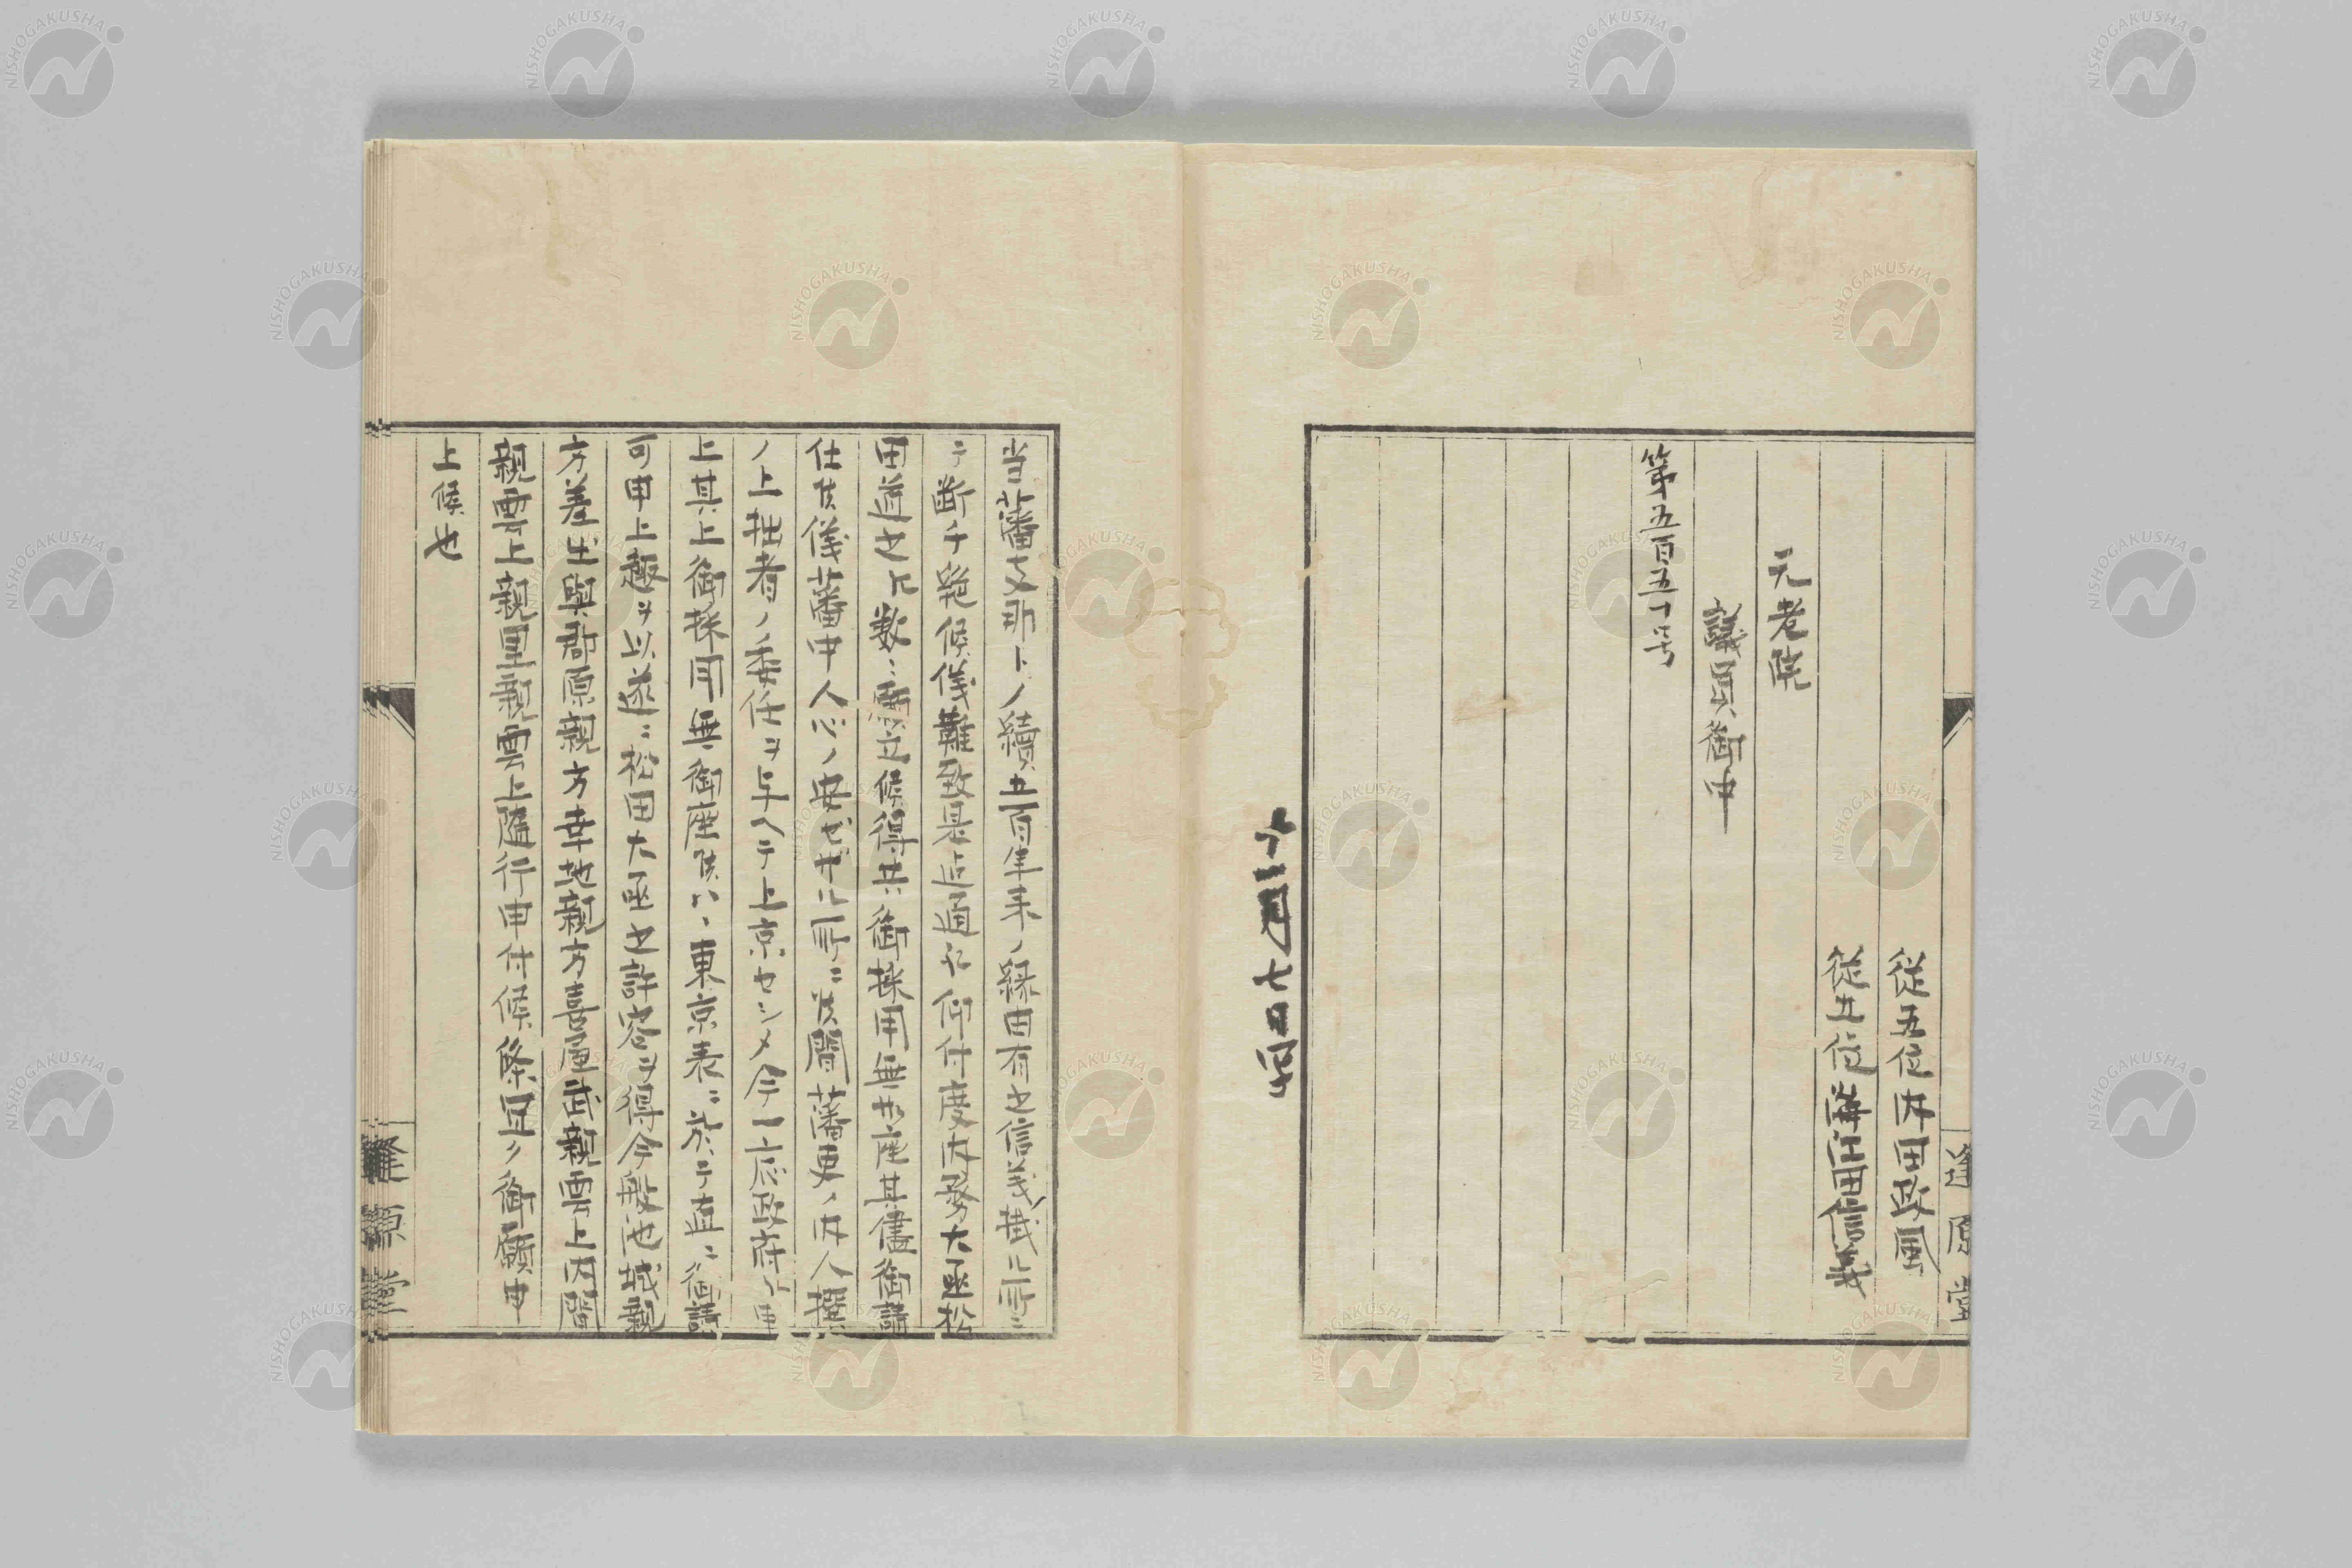 従五位内田政風
従五位海江田信義
元老院
議員御中
第五百五十号
十二月七日写
当藩支那トノ續五百年来ノ縁由有之信義掛ル所ニ
テ断千難候儀難致是迄通被仰付度内務大丞松
田道之上数々願立候得共御採用無御座其儘御請
仕候儀藩中人心ノ安セサル所ニ候間藩吏ノ内人撰
ノ上拙者ノ委任ヲ与ヘテ上京セシメ今一応政府ヘ申
上其上御採用無御座候ハヽ東京表ニ於テ直ニ御請
可申上趣ヲ以遂ニ松田大丞之許容ヲ得今般池城親
方差出與那原親方幸地親方喜屋武親雲上内間
親雲上親里親雲上隨行申付候條宜ク御願申
上候也
逢原堂
逢原堂
NISHOGAKUSHA